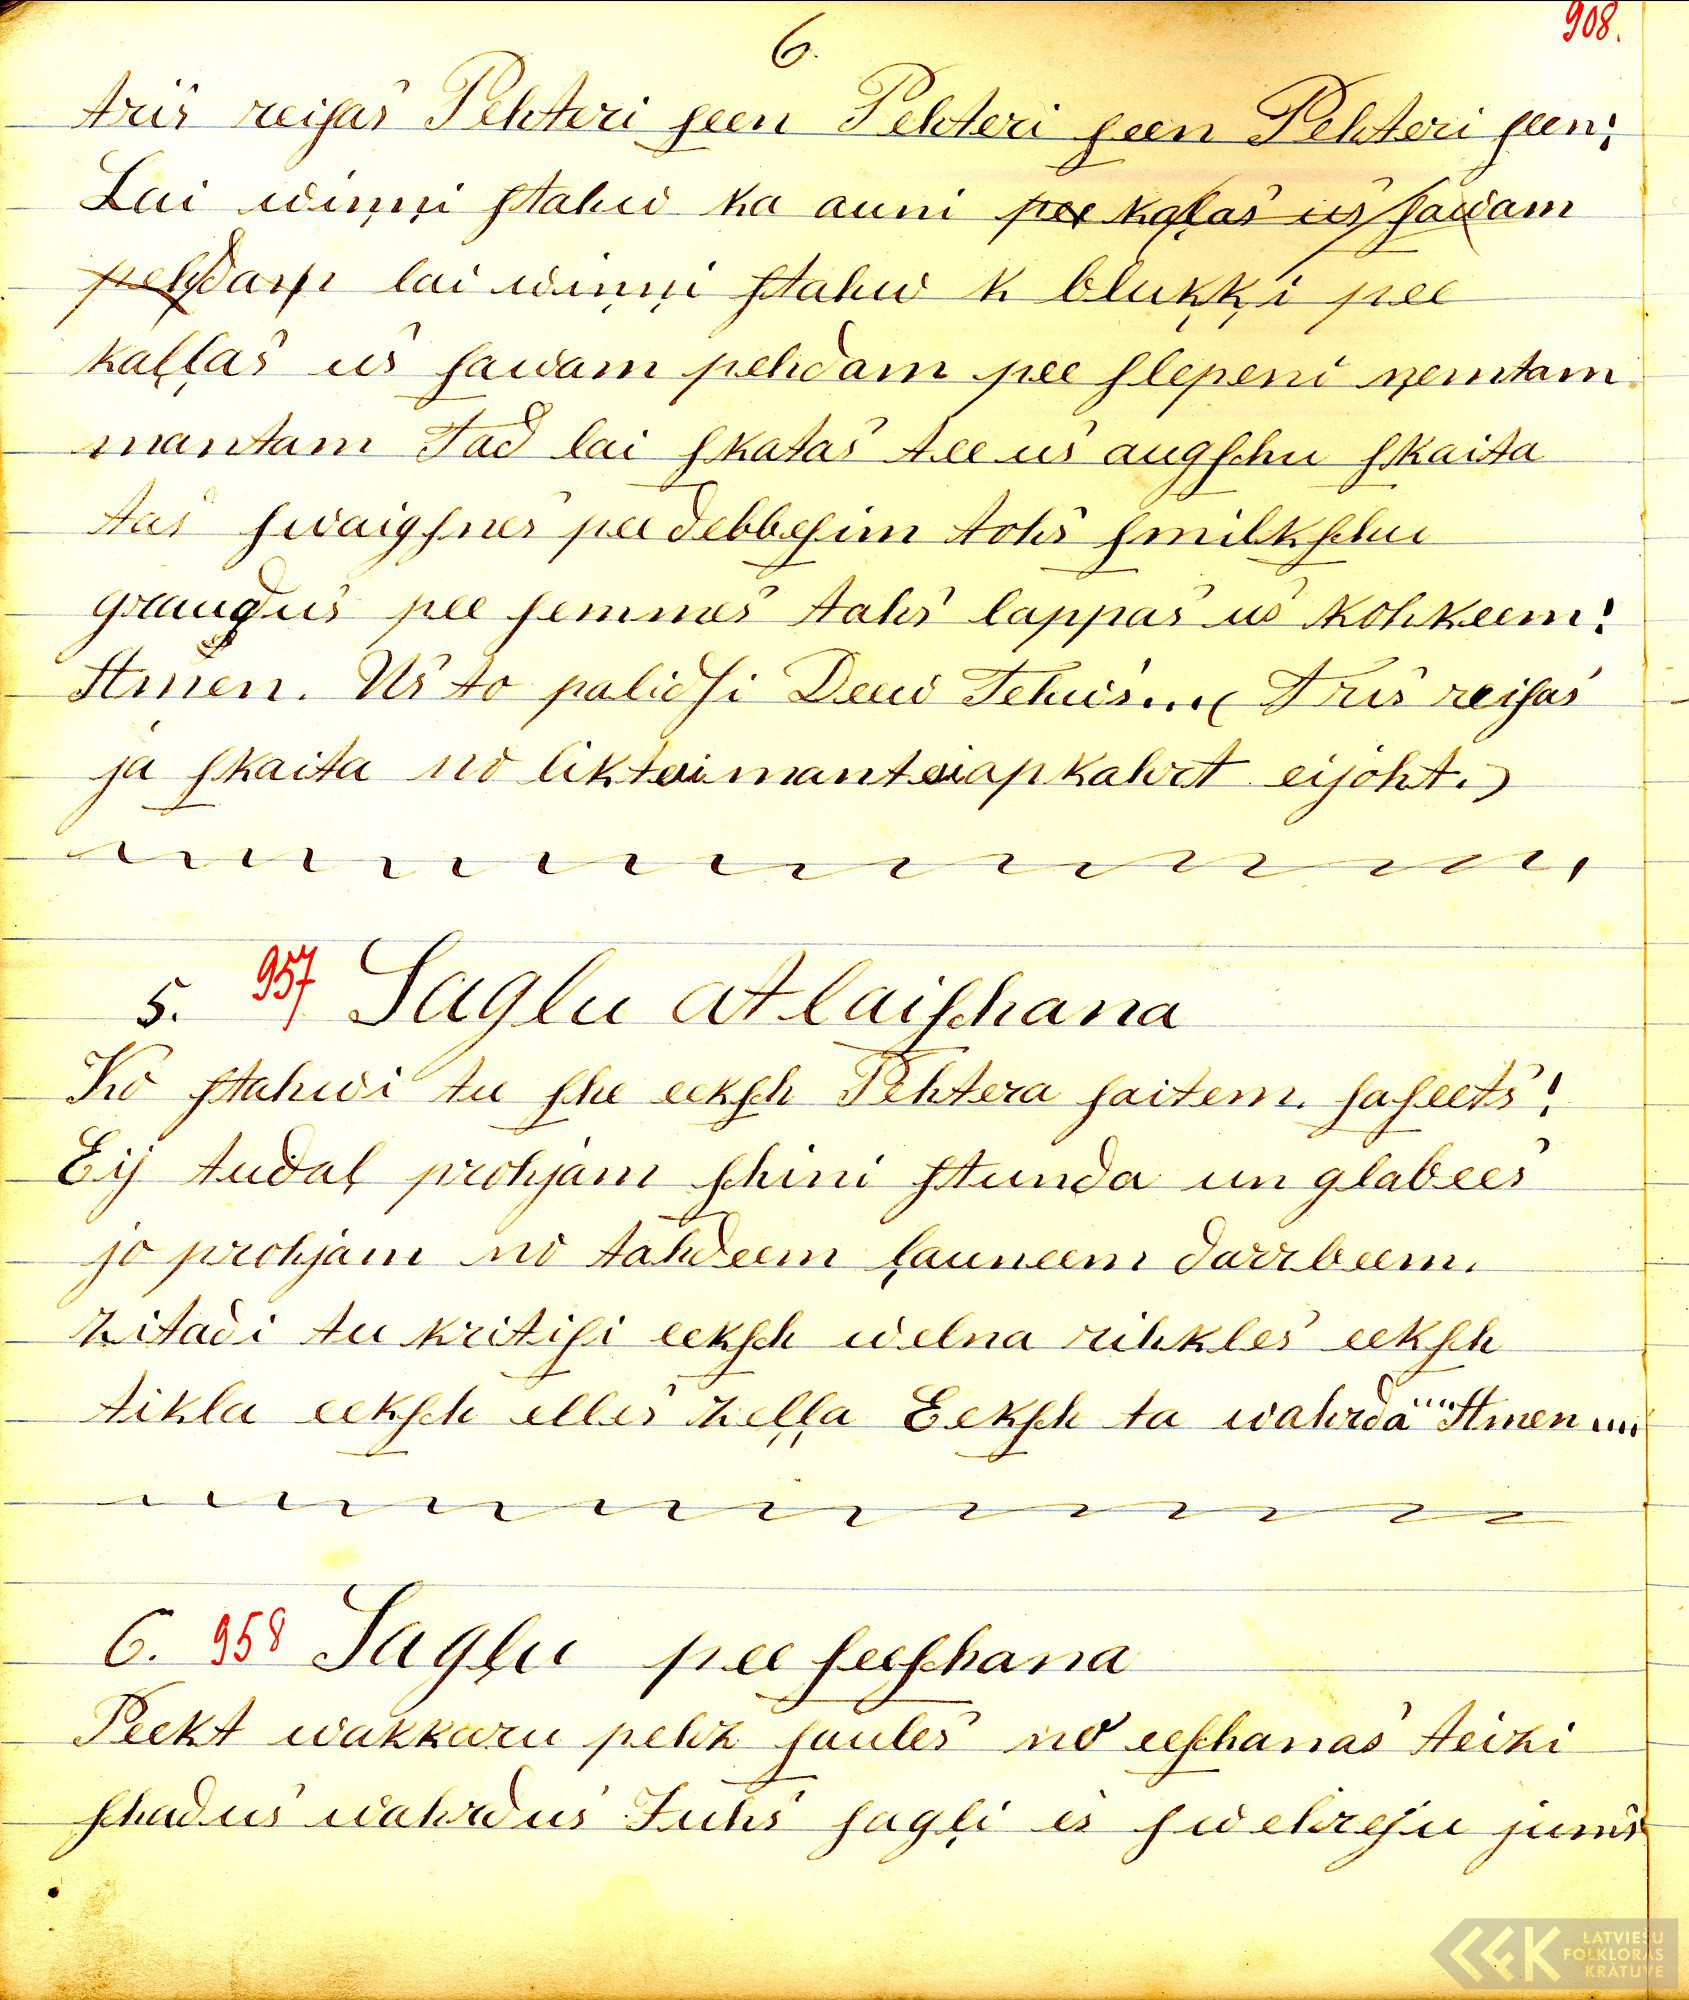 6.
908.
triś reiſaś Pehteri ſeen Pehteri ſeen Pehteri ſeen;
Lai wiņņi ſtahw ka auni pee kaļaś uś ſawam
pehdam lai wiņņi ſtahw k bluķķi pee
kaļļaś uś ſawam pehdam pee ſlepeni ņemtam
mantam Tad lai ſkataś tee uś augſchu ſkaita
taś ſwaigſneś pee debbeſim tohś ſmilkſchu
grauduś pee ſemmeś tahś lappaś uś kohkeem!
Amen. Uś to palidſi Deew Tehwś... ( Triś reiſaś
ja ſkaita no liktai mantai apkahrt eijoht.)
5. 957 Sagļu atlaiſchana
Ko ſtahwi tu ſche eekſch Pehtera ſaitem. ſaſeetś!
Eij tudaļ prohjam ſchini ſtunda un glabeeś
jo prohjam no tahdeem ļauneem darrbeem.
zitadi tu kritiſi eekſch welna rihkleś eekſch
tikla eekſch elleś zeļļa Eekſch ta wahrda .... Amen ....
6. 958 Sagļu pee ſeeſchana
Peekt wakkaru pehz ſauleś no eeſchanaś teizi
ſchaduś wahrduś Juhś ſagļi eś ſwehreju jumś
LATVIEŠU
FOLKLORAS
KRĀTUVE